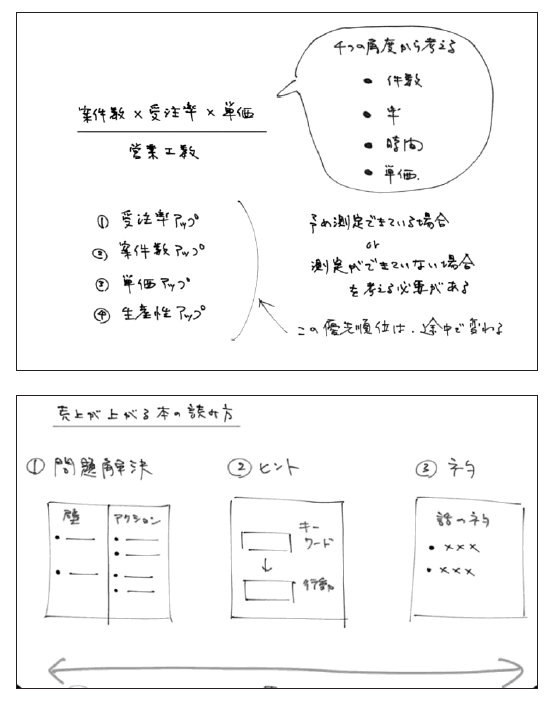 4つの角度から考える
• 件数
• 率
• 時間
• 単価
案件数 × 受注率 × 単価
営業工数
① 受注率アップ
② 案件数アップ
③ 単価アップ
④ 生産性アップ
予め測定できている場合
or
測定ができていない場合
を考える必要がある
この優先順位は、途中で変わる
売上が上がる本の読み方
① 問題解決
課題 アクション
② ヒント
キー
ワード
↓
行動
③ ネタ
話のネタ
• ×××
• ×××